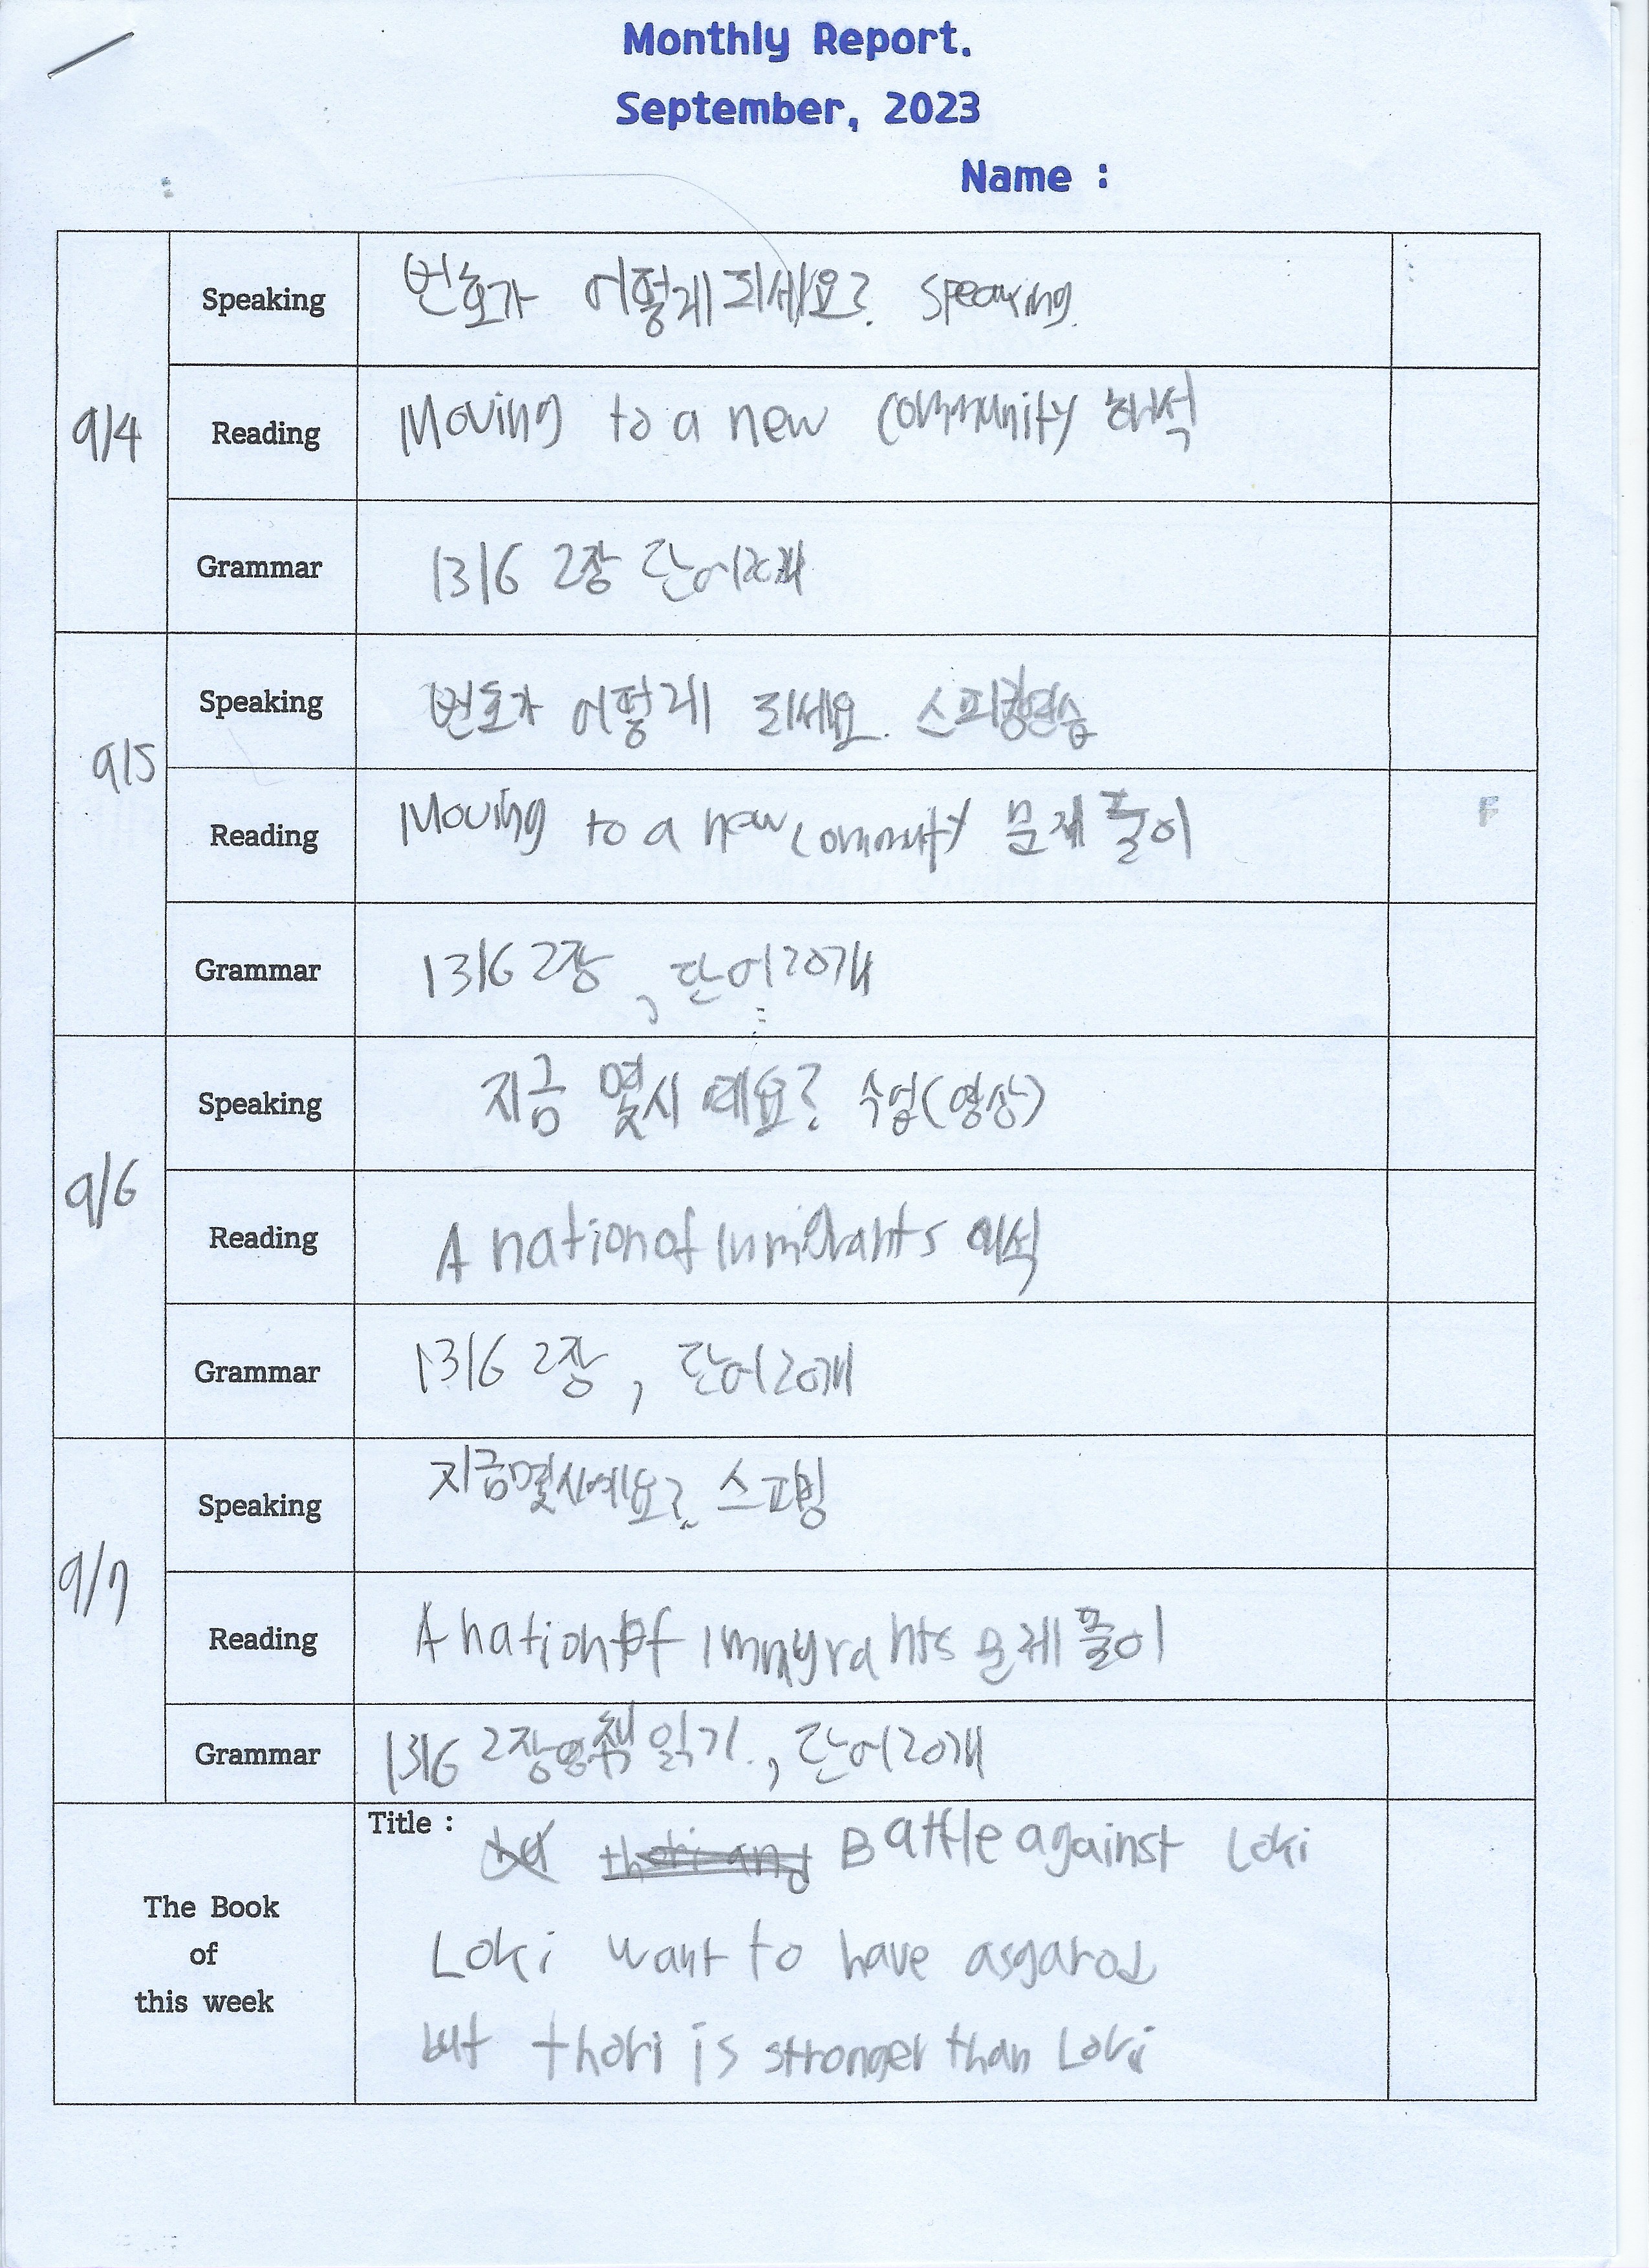 Monthly Report.
September, 2023
Name :
9/4
Speaking
번호가 어떻게 되세요? speaking.
Reading
Moving to a new community 해석
Grammar
1316 2장 단어20개
9/5
Speaking
번호가 어떻게 되세요. 스피킹연습
Reading
Moving to a new 문제 풀이
F
Grammar
1316 2장, 단어20개
9/6
Speaking
지금 몇시 예요? 수업(영상)
Reading
A nation of
Grammar
1316 2장, 단어20개
9/7
Speaking
지금몇시예요? 스피킹
Reading
A nation of 문제 풀이
Grammar
1316 2장 책 읽기., 단어20개
The Book
of
this week
Title :
Battle against Loki
Loki want to have asgarod
but thori is stronger than Loki